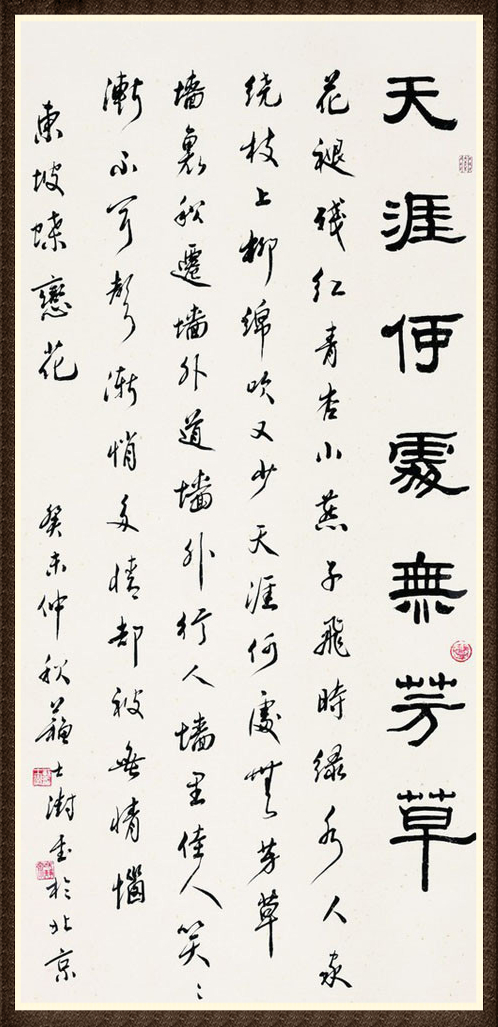 天涯何處無芳草
花褪殘红青杏小燕子飛時緑水人家
绕枝上柳綿吹又少天涯何處無芳草
墙裏秋遷墙外道墙外行人墙里佳人笑〻
漸不闻聲漸悄多情却被無情惱
東坡蝶戀花 癸未仲秋蘇士澍書於北京